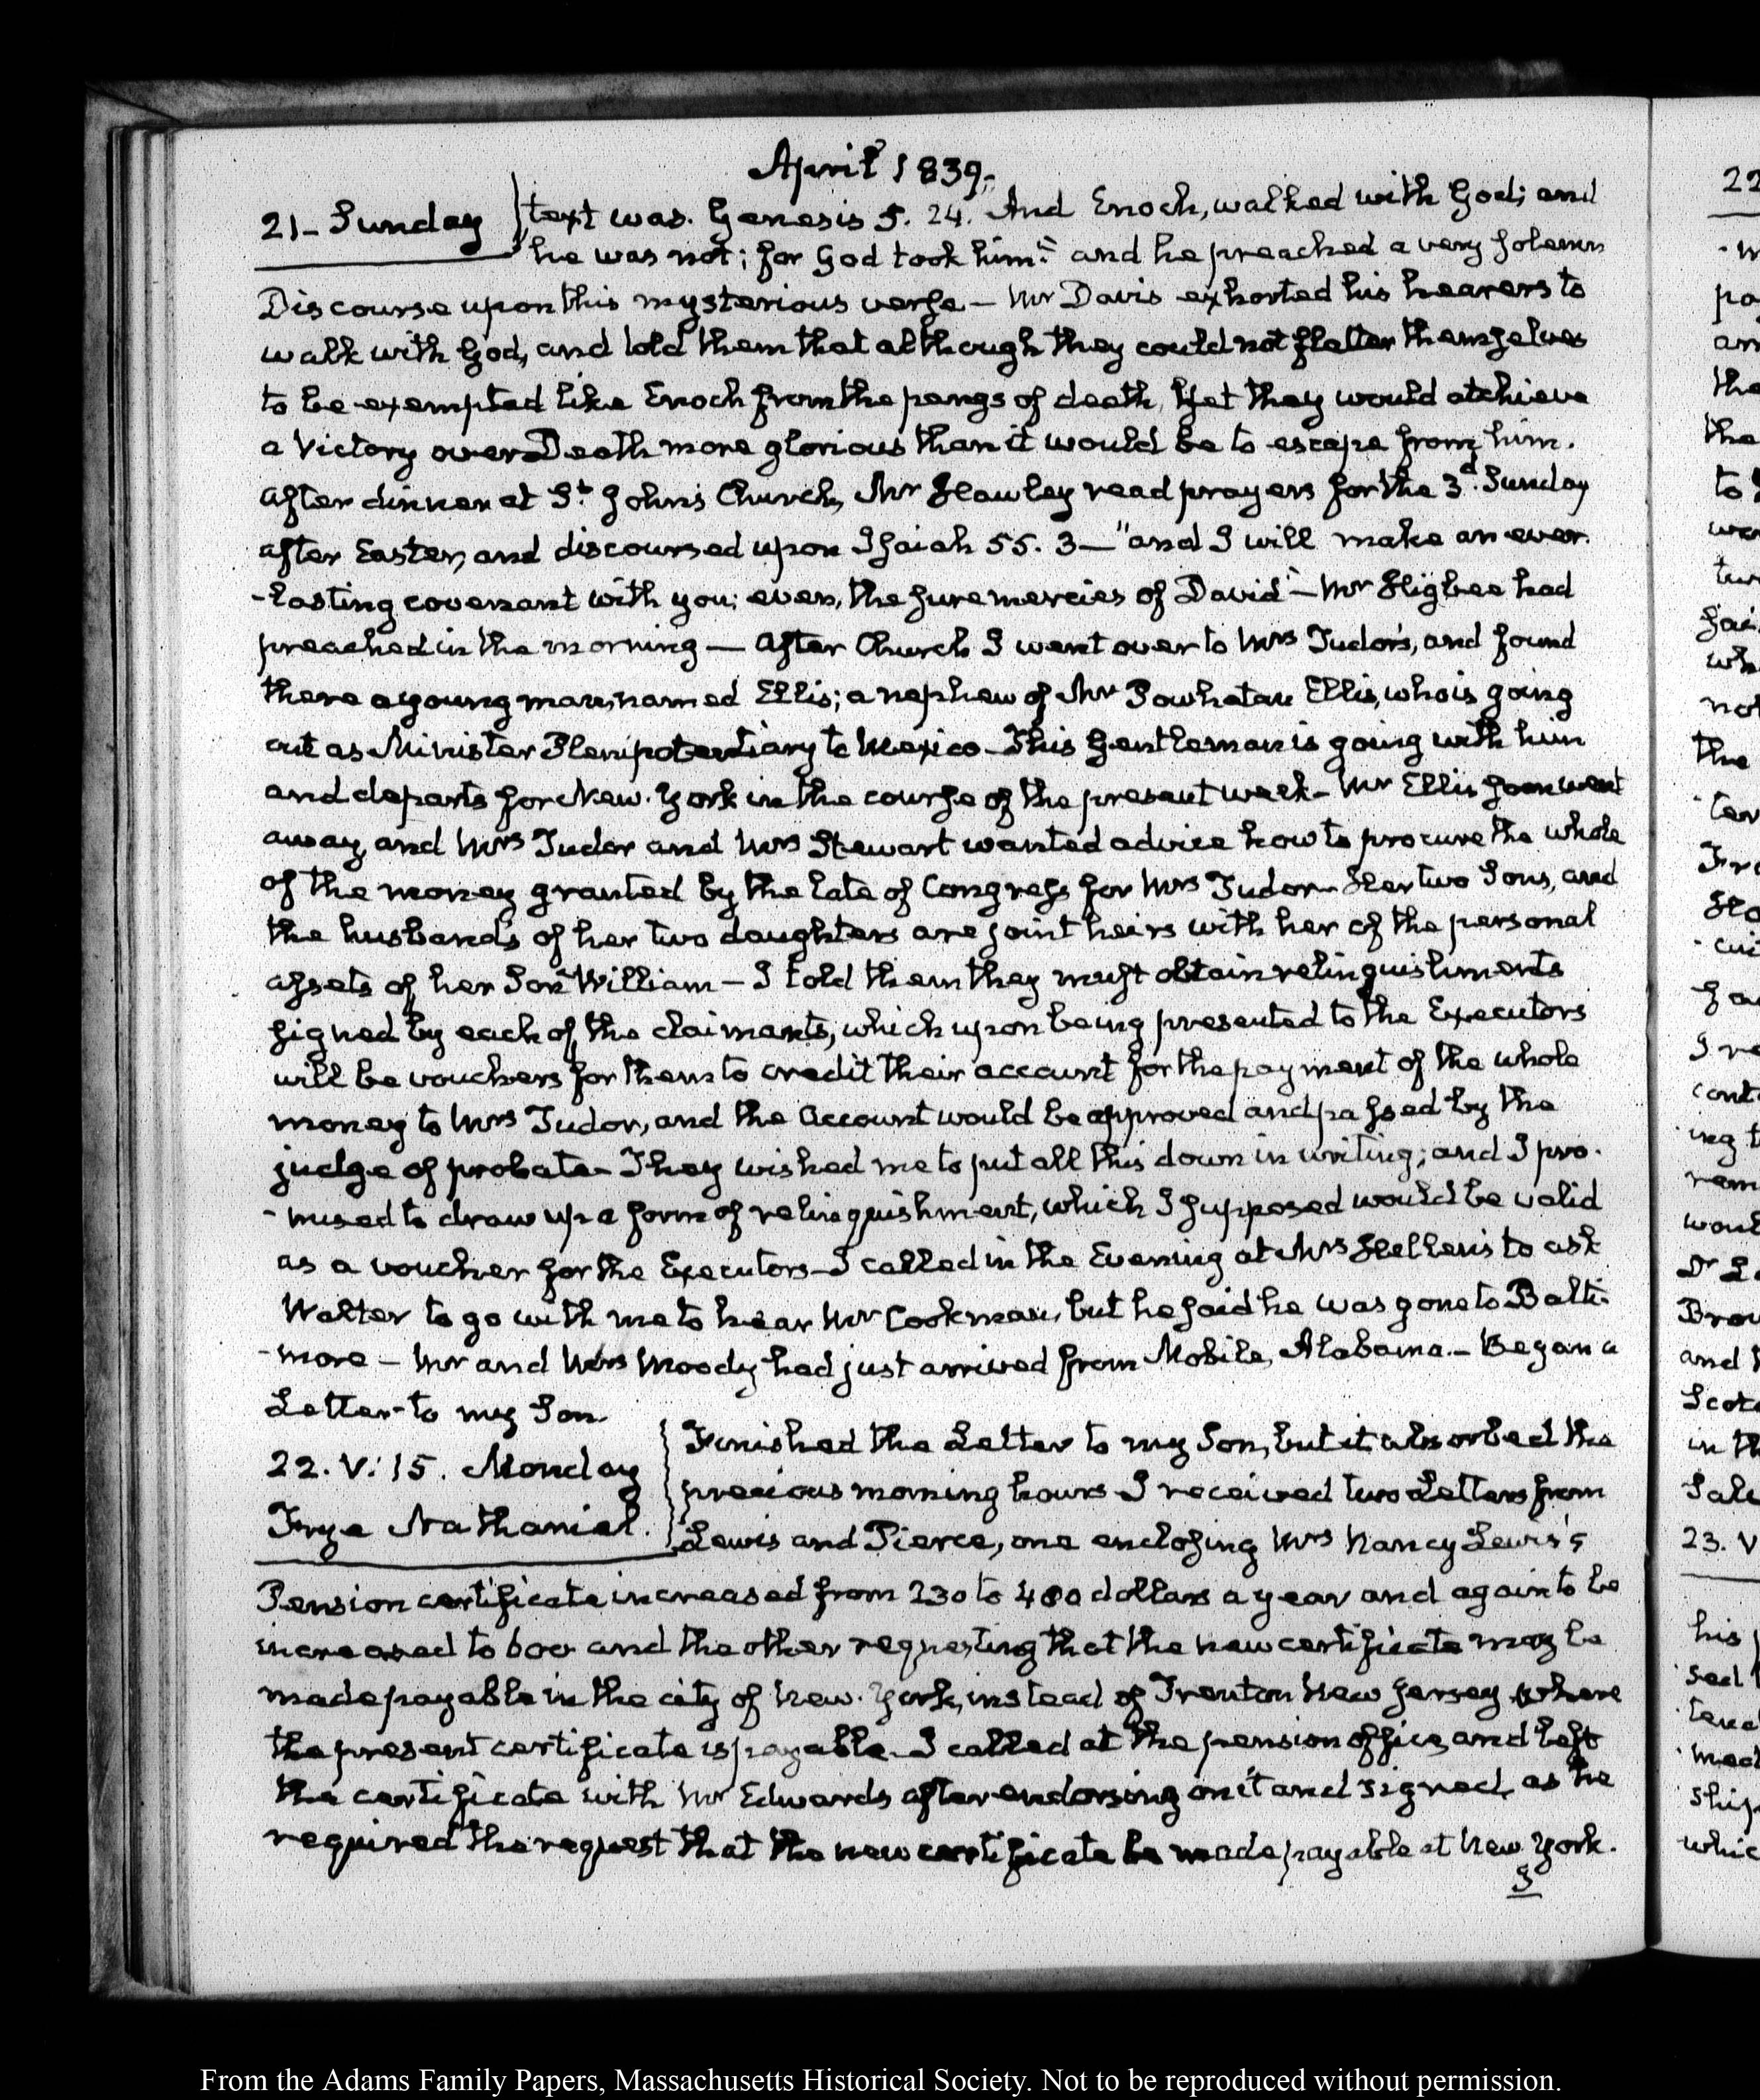 April 1839.
21- Sunday
text was. Genesis 5. 24. And Enoch, walked with God; and
he was not; for God took him." and he preached a very solemn
Discourse upon this mysterious verse — Mr Davis exhorted his hearers to
walk with God, and told them that although they could not flatter themselves
to be exempted like Enoch from the pangs of death, yet they would atchieve
a Victory over Death more glorious than it would be to escape from him.
After dinner at St John's Church, Mr Hawley read prayers for the 3d. Sunday
after Easter, and discoursed upon Isaiah 55. 3— "and I will make an ever-
-lasting covenant with you; even, the sure mercies of David"— Mr Higbee had
preached in the morning — After Church I went over to Mrs Tudor's, and found
there a young man, named Ellis; a nephew of Mr Powhatan Ellis, who is going
out as Minister Plenipotentiary to Mexico— This Gentleman is going with him
and departs for New-York in the course of the present week— Mr Ellis soon went
away, and Mrs Tudor and Mrs Stewart wanted advice how to procure the whole
of the money granted by the late of Congress for Mrs Tudor— Her two Sons, and
the husbands of her two daughters are joint heirs with her of the personal
assets of her Son William — I told them they must obtain relinquishments
signed by each of the claimants, which upon being presented to the Executors
will be vouchers for them to credit their account for the payment of the whole
money to Mrs Tudor, and the Account would be approved and passed by the
judge of probate— They wished me to put all this down in writing; and I pro-
-mised to draw up a form of relinquishment, which I supposed would be valid
as a voucher for the Executors— I called in the Evening at Mrs Hellen's to ask
Walter to go with me to hear Mr Cookman, but he said he was gone to Balti-
-more — Mr and Mrs Moody had just arrived from Mobile, Alabama.— Began a
Letter to my Son.
22. V:15. Monday
Frye Nathaniel.
Finished the Letter to my Son, but it absorbed the
precious morning hours— I received two Letters from
Lewis and Pierce, one enclosing Mrs Nancy Lewis's
Pension certificate increased from 230 to 480 dollars a year and again to be
increased to 600 and the other requesting that the new certificate may be
made payable in the city of New-York, instead of Trenton New Jersey where
the present certificate is payable— I called at the pension office, and left
the certificate with Mr Edwards after endorsing on it and signed, as he
required the request that the new certificate be made payable at New York.
I
22
pa
the
to
the
23. V
his
From the Adams Family Papers, Massachusetts Historical Society. Not to be reproduced without permission.